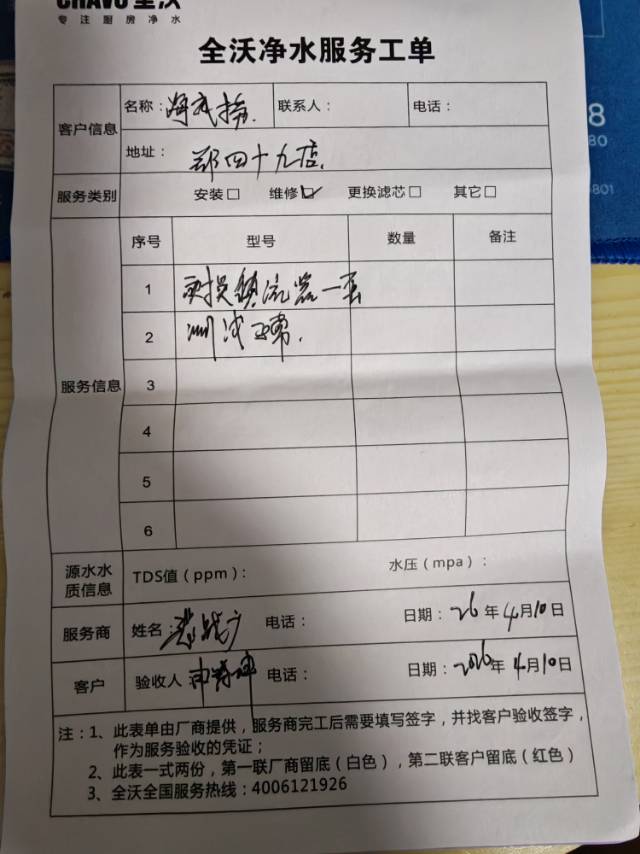 CHAVO 全沃
专注厨房净水
全沃净水服务工单
客户信息
名称：海底捞.
联系人：
电话：
地址：郑四十九店.
服务类别
安装□ 维修☑ 更换滤芯□ 其它□
服务信息
序号 型号 数量 备注
1 更换镇流器一套
2 测试正常.
3
4
5
6
源水水质信息
TDS值（ppm）： 水压（mpa）：
服务商 姓名： 电话： 日期：26年4月10日
客户 验收人 电话： 日期：2026年4月10日
注：1、此表单由厂商提供，服务商完工后需要填写签字，并找客户验收签字，
作为服务验收的凭证；
2、此表一式两份，第一联厂商留底（白色），第二联客户留底（红色）
3、全沃全国服务热线：4006121926
8
80
801